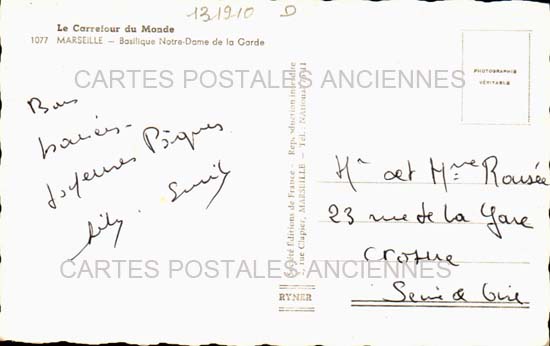 131910 D
Le Carrefour du Monde
1077 MARSEILLE — Basilique Notre-Dame de la Garde
PHOTOGRAPHIE
VÉRITABLE
CARTES POSTALES ANCIENNES
Bons
baisers -
Joyeuses Pâques
Lily.
Mr et Mme Rousée
23 rue de la Gare
Crosne
Seine et Oise
Société Éditions de France - Reproduction interdite
2, rue Clapier, MARSEILLE - Tél. NAtional
RYNER
CARTES POSTALES ANCIENNES